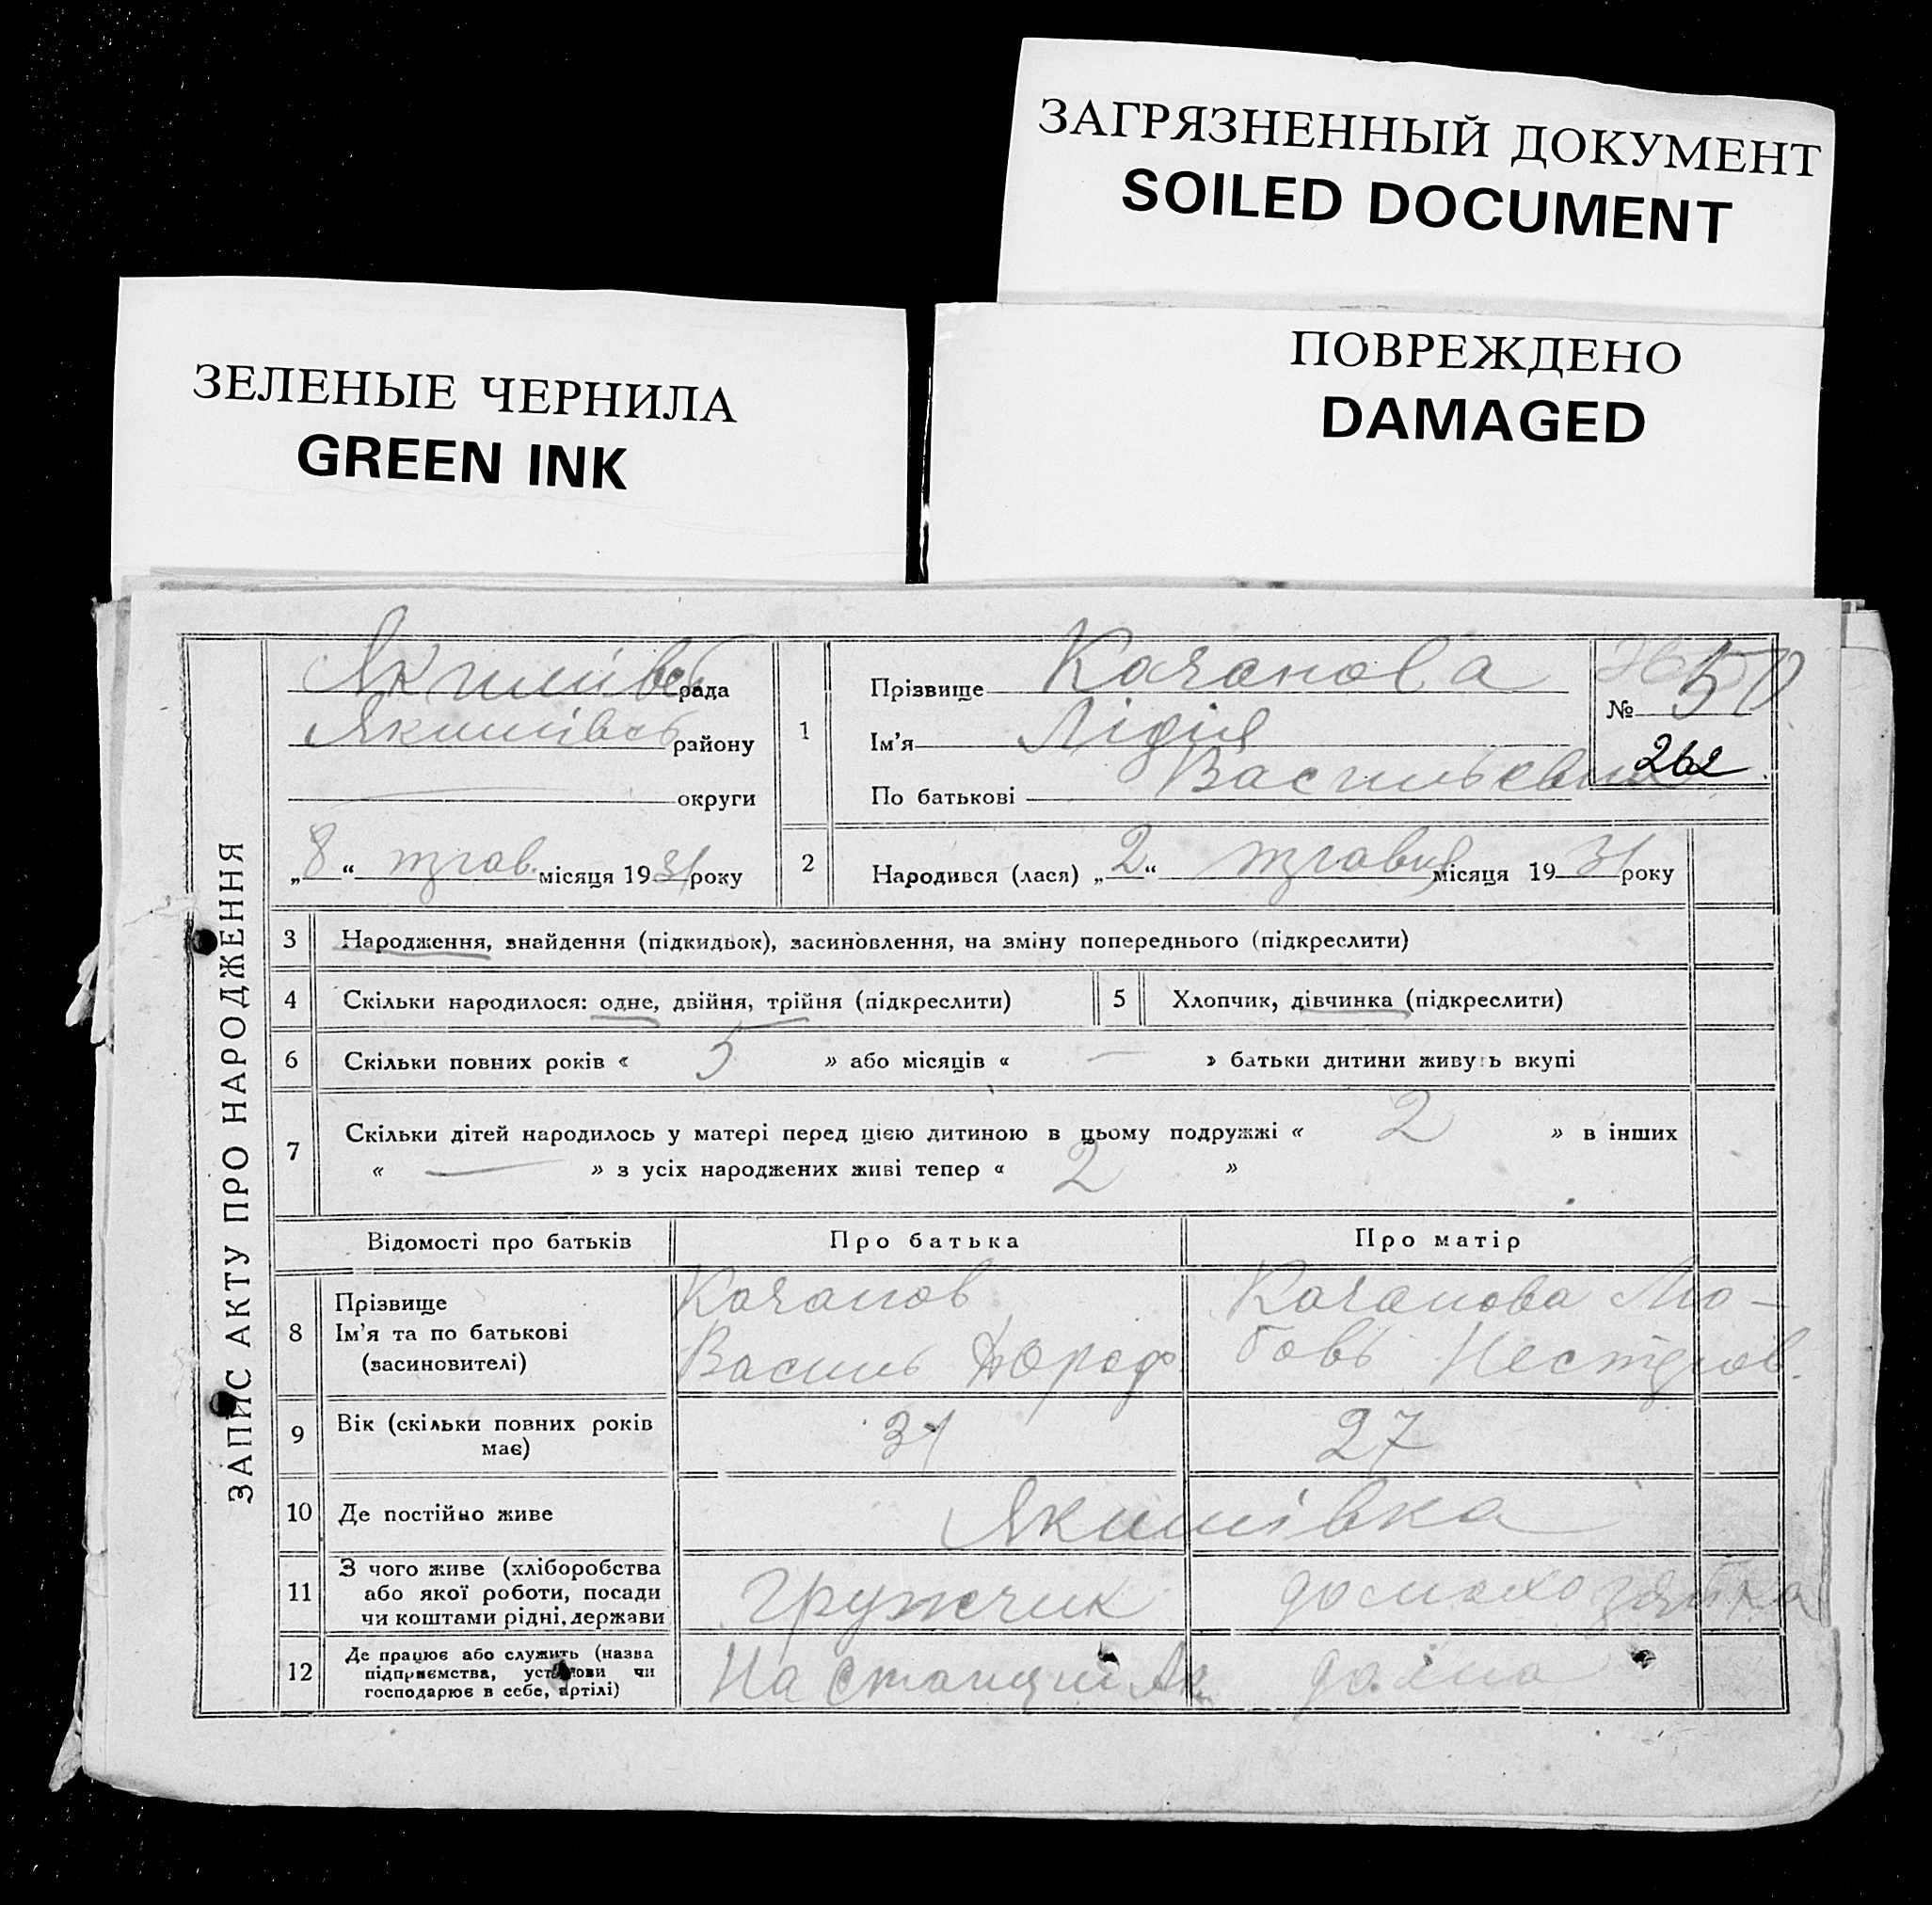 ЗАГРЯЗНЕННЫЙ ДОКУМЕНТ
SOILED DOCUMENT
ПОВРЕЖДЕНО
DAMAGED
ЗЕЛЕНЫЕ ЧЕРНИЛА
GREEN INK
ЗАПИС АКТУ ПРО НАРОДЖЕННЯ
Якимівсь рада
Якимівсь району
округи
„8“ трав. місяця 1931 року
1 Прізвище Качанова
Ім'я Лідія
По батькові Васильевна
№ 50
262
2 Народився (лася) „2“ травня місяця 1931 року
3 Народження, знайдення (підкидьок), засиновлення, на зміну попереднього (підкреслити)
4 Скільки народилося: одне, двійня, трійня (підкреслити)
5 Хлопчик, дівчинка (підкреслити)
6 Скільки повних років « 5 » або місяців « — » батьки дитини живуть вкупі
7 Скільки дітей народилось у матері перед цією дитиною в цьому подружжі « 2 » в інших
« — » з усіх народжених живі тепер « 2 »
Відомості про батьків Про батька Про матір
8 Прізвище
Ім'я та по батькові
(засиновителі)
Качанов
Василь
Качанова Лю-
бовь Нестеров.
9 Вік (скільки повних років
має)
31 27
10 Де постійно живе Якимівка
11 З чого живе (хліборобства
або якої роботи, посади
чи коштами рідні, держави
грузчик домохозяйка
12 Де працює або служить (назва
підприємства, установи чи
господарює в себе, артілі)
На станции Як. дома